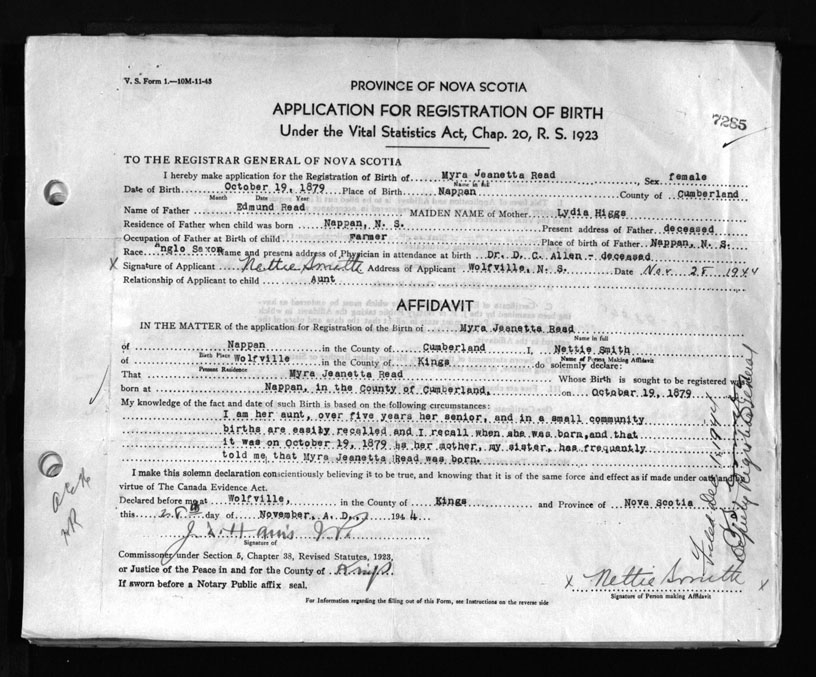 V. S. Form 1.—10M-11-43
PROVINCE OF NOVA SCOTIA
APPLICATION FOR REGISTRATION OF BIRTH
7285
Under the Vital Statistics Act, Chap. 20, R. S. 1923
TO THE REGISTRAR GENERAL OF NOVA SCOTIA
I hereby make application for the Registration of Birth of Myra Jeanetta Read, Sex female
Name in full
Date of Birth October 19, 1879 Place of Birth Nappan County of Cumberland
Month Date Year
Name of Father Edmund Read MAIDEN NAME of Mother Lydia Higgs
Residence of Father when child was born Nappan, N. S. Present address of Father deceased
Occupation of Father at Birth of child Farmer Place of birth of Father Nappan, N. S.
Race Anglo Saxon Name and present address of Physician in attendance at birth Dr. D. C. Allen - deceased
x Signature of Applicant Nettie Smith Address of Applicant Wolfville, N. S. Date Nov 28 1944
Relationship of Applicant to child Aunt
AFFIDAVIT
IN THE MATTER of the application for Registration of the Birth of Myra Jeanetta Read
Name in full
of Nappan in the County of Cumberland I, Nettie Smith
Birth Place Name of Person Making Affidavit
of Wolfville in the County of Kings do solemnly declare:
Present Residence
That Myra Jeanetta Read Whose Birth is sought to be registered was
born at Nappan, in the County of Cumberland, on October 19, 1879
My knowledge of the fact and date of such Birth is based on the following circumstances:
I am her aunt, over five years her senior, and in a small community
births are easily recalled and I recall when she was born, and that
it was on October 19, 1879 as her mother, my sister, has frequently
told me that Myra Jeanetta Read was born.
I make this solemn declaration conscientiously believing it to be true, and knowing that it is of the same force and effect as if made under oath and by
virtue of The Canada Evidence Act.
Declared before me at Wolfville, in the County of Kings and Province of Nova Scotia
this 28th day of November, A. D., 1944
Signature of
Commissoner under Section 5, Chapter 38, Revised Statutes, 1923,
or Justice of the Peace in and for the County of Kings.
If sworn before a Notary Public affix seal.
x Nettie Smith x
Signature of Person making Affidavit
For Information regarding the filling out of this Form, see Instructions on the reverse side
Deputy Registrar General